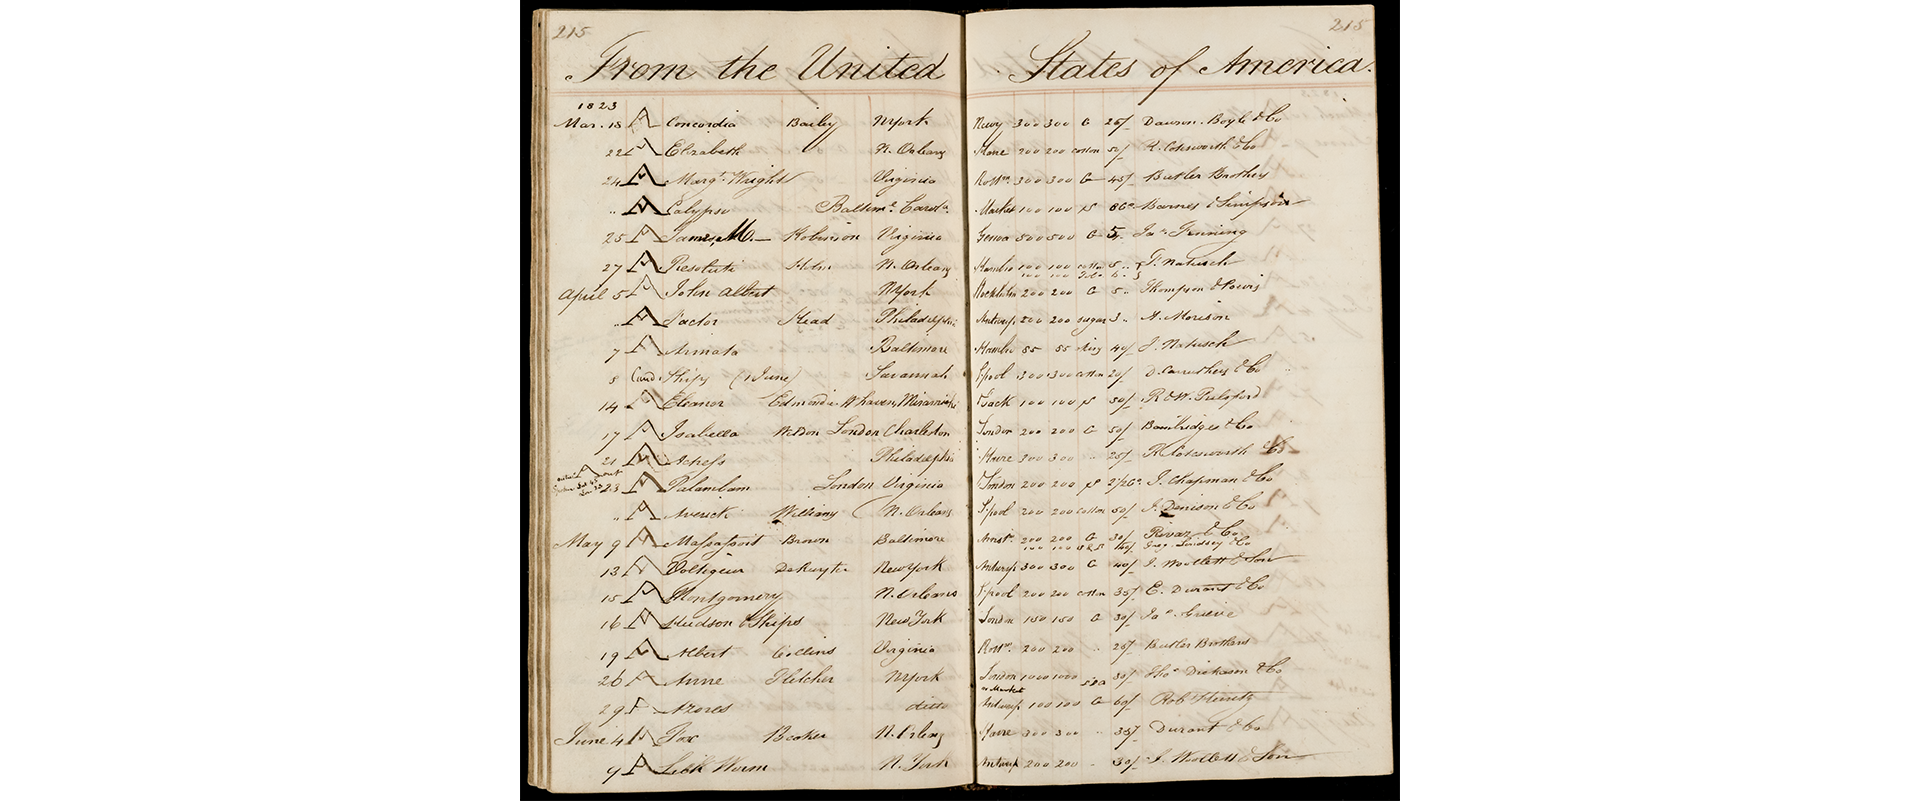 215 215
From the United States of America.
1823
Mar. 18 Concordia Bailey NYork Newy 300 300 G 25/ Dawson. Boyle & Co
22 Elizabeth N. Orleans Havre 200 200 cotton 50/ R. Cotesworth & Co
24 Margt. Wright Virginia Rottm. 300 300 G 45/ Butler Brothers
" Calypso Baltime. Market 100 100 Barnes & Simpson
25 James M. Robinson Virginia Genoa 500 500 G 5 Jas Fenning
27 Resolute Holm N. Orleans Hambro 100 100 cotton 5 .. J. Natusch
100 100
April 5 John Albert NYork 200 200 G 5 .. Thompson & Powis
" Factor Head Philadelphia Antwerp 200 200 sugar 3 .. H. Morison
7 Armata Baltimore Hambro 55 55 40/ J. Natusch
8 Cund. Ships (1 June) Savannah Lpool 300 300 cotton 20/ D. Carruthers & Co
14 Eleanor Edmondson Whaven, Miramichi Back 100 100 50/ R & W. Pulsford
17 Isabella Weldon London Charleston London 200 200 G 50/ Bainbridges & Co
21 Philadelphia Havre 300 300 " 25/ R. Cotesworth & Co
23 Palambam London Virginia London 200 200 J. Chapman & Co
" Averick Williams N. Orleans Lpool 200 200 cotton 50/ J. Denison & Co
May 9 Massasoit Brown Baltimore Amst. 200 200 G 30/ Rivaz & Co
100 100 Lindsey & Co
13 Voltigeur DeRuyter New York Antwerp 300 300 G 40/ J. Woollett & Son
15 Montgomery N. Orleans Lpool 200 200 cotton 35/ E. Durant & Co
16 Hudson & Ships New York London 150 150 G 30/ Jas. Grieve
19 Albert Collins Virginia Rottm. 200 200 " 25/ Butler Brothers
26 Anne Fletcher NYork London 1000 1000 30/ Thos Dickason & Co
or Market
29 Azores ditto Antwerp 100 100 G 60/ Rob
June 4 Fox Booker N. Orleans Havre 300 300 " 35/ Durant & Co
9 Silk Worm N. York Antwerp 200 200 " 30/ J. Woollett & Son